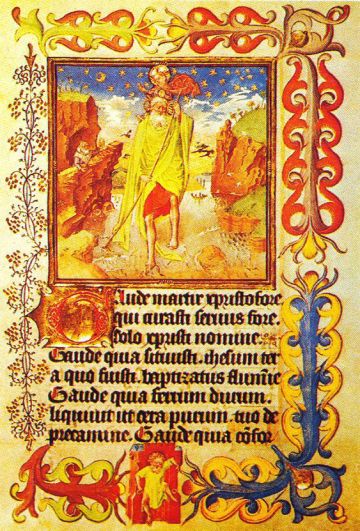 Gaude martir xpristofore
qui curasti seruus fore.
solo xpisti nomine.
Gaude quia situisti. ihesum ter
a quo fuisti. baptizatus flumĩe
Gaude quia ferrum durum.
liquiuit ut cera purum. tuo de
precamine. Gaude quia cõfor